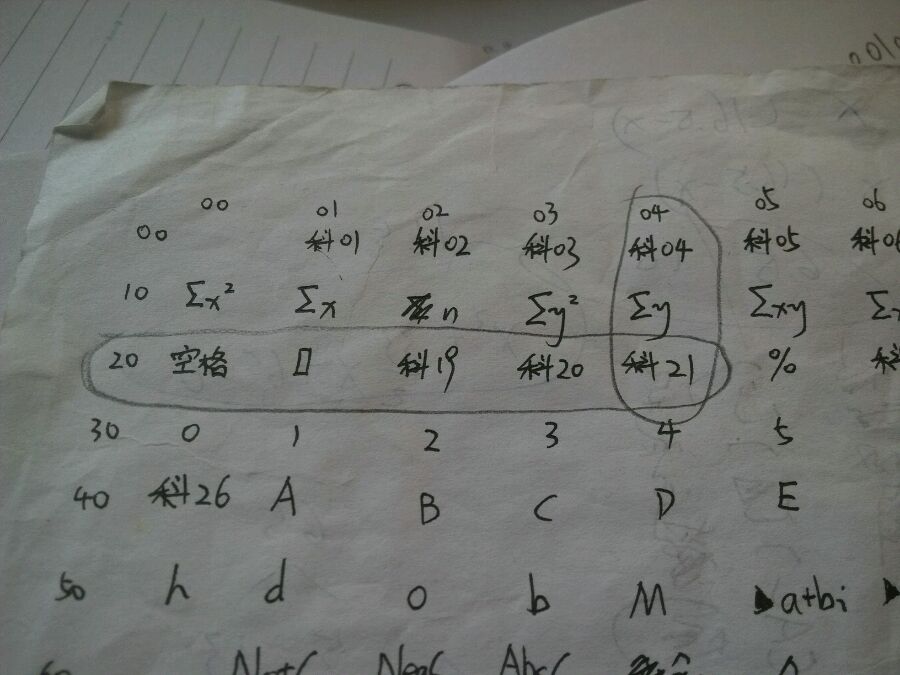 00 01 02 03 04 05 06
00 科01 科02 科03 科04 科05 科06
10 Σx² Σx n Σy² Σy Σxy
20 空格 科19 科20 科21 % 科
30 0 1 2 3 4 5
40 科26 A B C D E
50 h d o b M ▶a+bi ▶